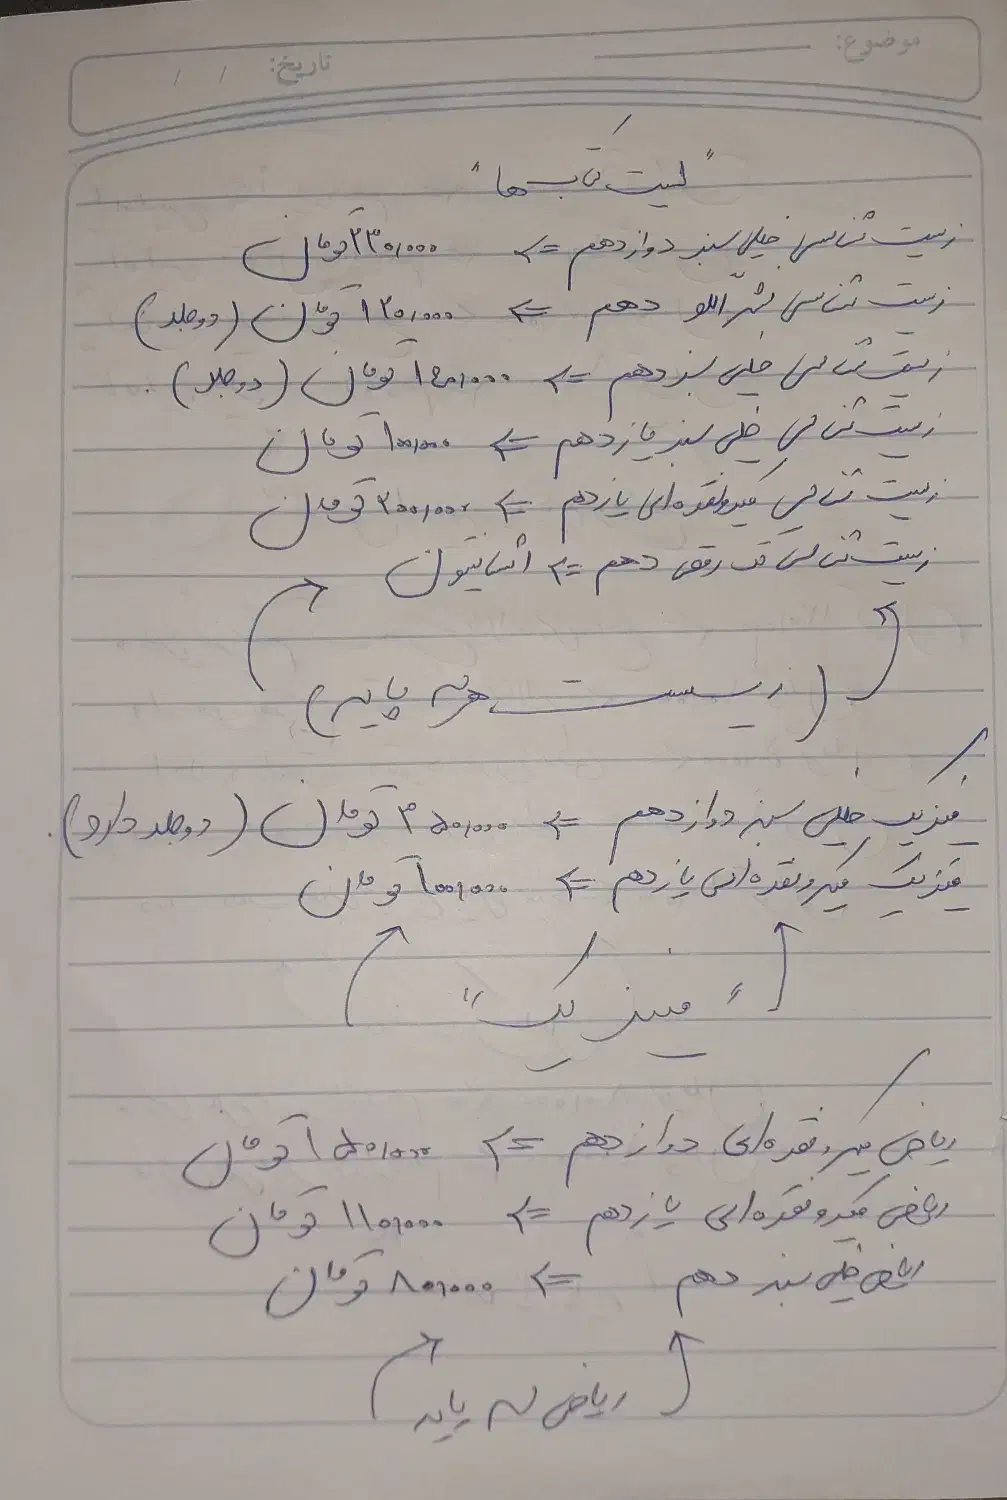 موضوع:
تاریخ: / /
"لیست کتاب ها"
زیست شناسی خیلی سبز دوازدهم => ۲۳۰,۰۰۰ تومان
زیست شناسی نشرالگو دهم => ۱۲۰,۰۰۰ تومان (دو جلد)
زیست شناسی خیلی سبز دهم => ۱۴۰,۰۰۰ تومان (دو جلد).
زیست شناسی خیلی سبز یازدهم => ۱۰۰,۰۰۰ تومان
زیست شناسی میکروطبقه‌ای یازدهم => ۲۰۰,۰۰۰ تومان
زیست شناسی دهم => اشانتیون
(زیست هر سه پایه)
فیزیک خیلی سبز دوازدهم => ۳۵۰,۰۰۰ تومان (دو جلد دارد).
فیزیک میکروطبقه‌ای یازدهم => ۱۰۰,۰۰۰ تومان
"فیزیک"
ریاضی میکروطبقه‌ای دوازدهم => ۱۵۰,۰۰۰ تومان
ریاضی میکروطبقه‌ای یازدهم => ۱۱۰,۰۰۰ تومان
ریاضی خیلی سبز دهم => ۸۰,۰۰۰ تومان
ریاضی سه پایه